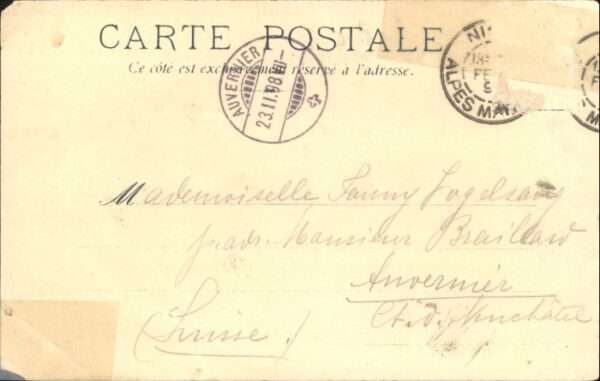 CARTE POSTALE
Ce côté est exclusivement réservé à l'adresse.
AUVERNIER
23.II.98
NI
FE
9
ALPES MAR
M
Mademoiselle Fanny Vogelsang
p. adr. Monsieur Braillard
Auvernier
Ct. d. Neuchâtel
(Suisse.)